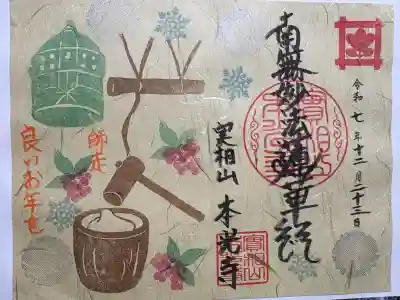 令和七年十二月二十三日
南無妙法蓮華経
實相山 本光寺
師走
良いお年を